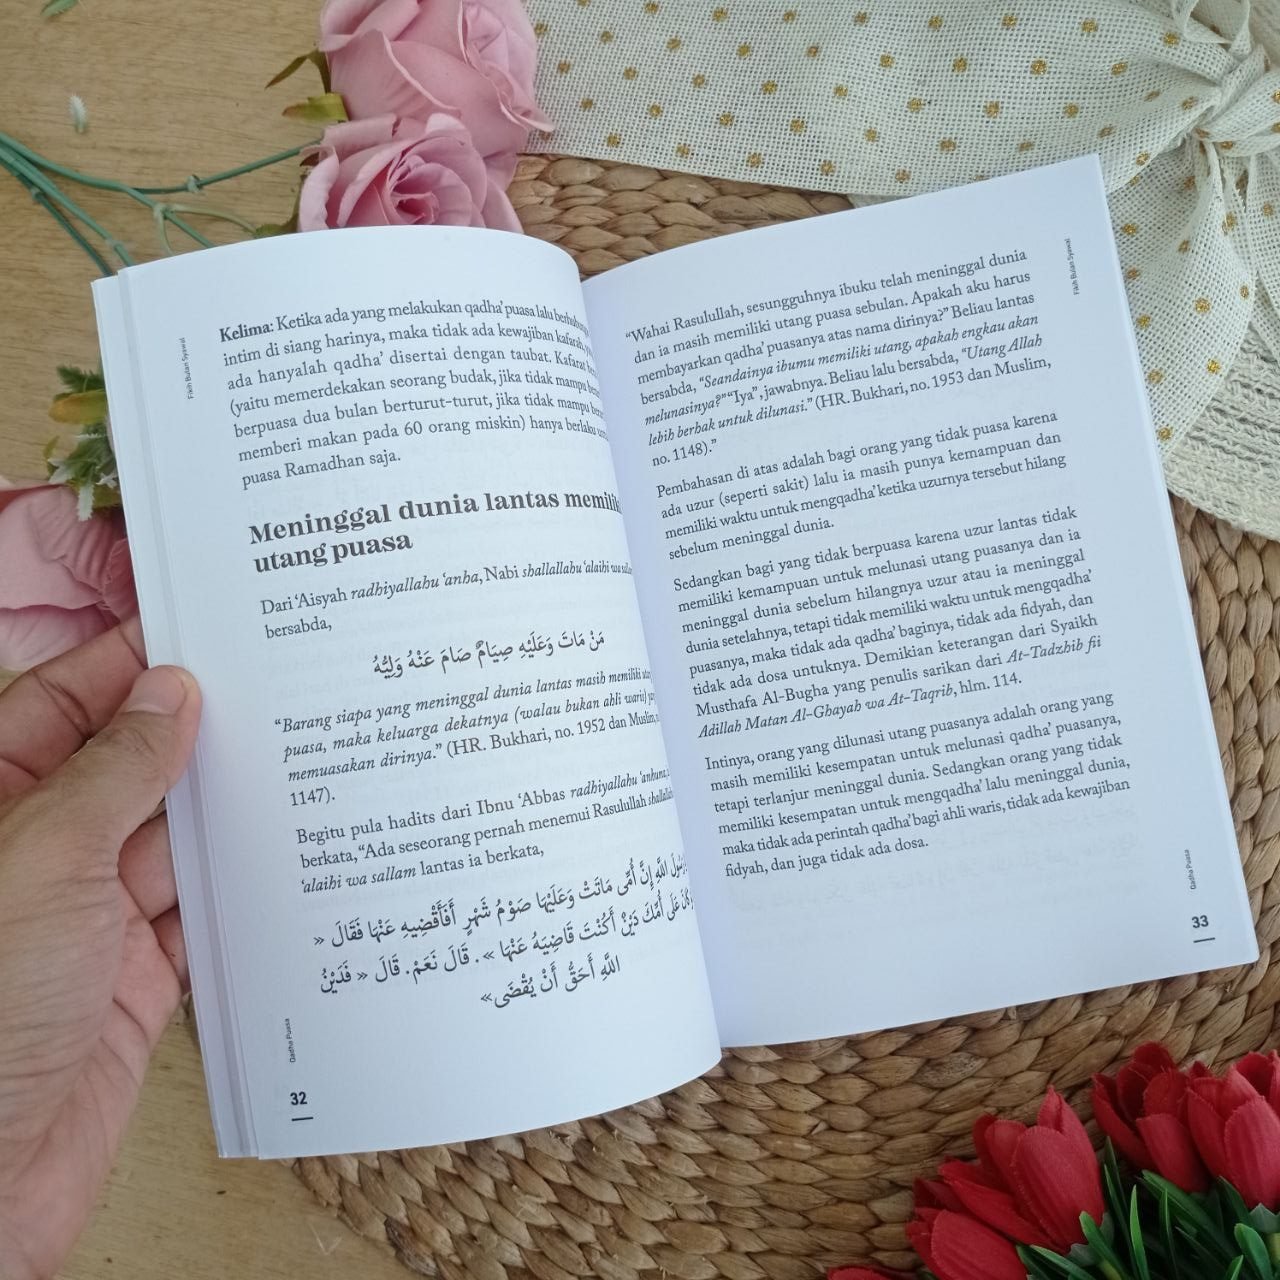 Fikih Bulan Syawal
Kelima: Ketika ada yang melakukan qadha' puasa lalu
intim di siang harinya, maka tidak ada kewajiban kafarah,
ada hanyalah qadha' disertai dengan taubat. Kafarat
(yaitu memerdekakan seorang budak, jika tidak mampu
berpuasa dua bulan berturut-turut, jika tidak mampu
memberi makan pada 60 orang miskin) hanya berlaku
puasa Ramadhan saja.
Meninggal dunia lantas memiliki
utang puasa
Dari 'Aisyah radhiyallahu 'anha, Nabi shallallahu 'alaihi wa
bersabda,
مَنْ مَاتَ وَعَلَيْهِ صِيَامٌ صَامَ عَنْهُ وَلِيُّهُ
"Barang siapa yang meninggal dunia lantas masih memiliki
puasa, maka keluarga dekatnya (walau bukan ahli waris)
memuasakan dirinya." (HR. Bukhari, no. 1952 dan Muslim,
1147).
Begitu pula hadits dari Ibnu 'Abbas radhiyallahu
berkata, "Ada seseorang pernah menemui Rasulullah
'alaihi wa sallam lantas ia berkata,
اللَّهِ إِنَّ أُمِّى مَاتَتْ وَعَلَيْهَا صَوْمُ شَهْرٍ أَفَأَقْضِيهِ عَنْهَا فَقَالَ «
عَلَى أُمِّكَ دَيْنٌ أَكُنْتَ قَاضِيَهُ عَنْهَا ». قَالَ نَعَمْ. قَالَ « فَدَيْنُ
اللَّهِ أَحَقُّ أَنْ يُقْضَى»
Qadha Puasa
32
Fikih Bulan Syawal
"Wahai Rasulullah, sesungguhnya ibuku telah meninggal dunia
dan ia masih memiliki utang puasa sebulan. Apakah aku harus
membayarkan qadha' puasanya atas nama dirinya?" Beliau lantas
bersabda, "Seandainya ibumu memiliki utang, apakah engkau akan
melunasinya?" "Iya", jawabnya. Beliau lalu bersabda, "Utang Allah
lebih berhak untuk dilunasi." (HR. Bukhari, no. 1953 dan Muslim,
no. 1148)."
Pembahasan di atas adalah bagi orang yang tidak puasa karena
ada uzur (seperti sakit) lalu ia masih punya kemampuan dan
memiliki waktu untuk mengqadha' ketika uzurnya tersebut hilang
sebelum meninggal dunia.
Sedangkan bagi yang tidak berpuasa karena uzur lantas tidak
memiliki kemampuan untuk melunasi utang puasanya dan ia
meninggal dunia sebelum hilangnya uzur atau ia meninggal
dunia setelahnya, tetapi tidak memiliki waktu untuk mengqadha'
puasanya, maka tidak ada qadha' baginya, tidak ada fidyah, dan
tidak ada dosa untuknya. Demikian keterangan dari Syaikh
Musthafa Al-Bugha yang penulis sarikan dari At-Tadzhib fii
Adillah Matan Al-Ghayah wa At-Taqrib, hlm. 114.
Intinya, orang yang dilunasi utang puasanya adalah orang yang
masih memiliki kesempatan untuk melunasi qadha' puasanya,
tetapi terlanjur meninggal dunia. Sedangkan orang yang tidak
memiliki kesempatan untuk mengqadha' lalu meninggal dunia,
maka tidak ada perintah qadha' bagi ahli waris, tidak ada kewajiban
fidyah, dan juga tidak ada dosa.
Qadha Puasa
33